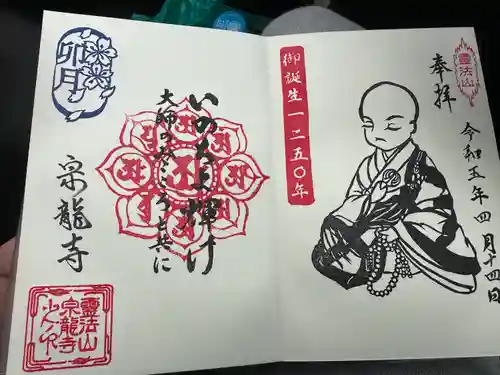 奉拝
霊法山
令和五年四月十四日
御誕生一二五〇年
いのちよ輝け
大師のみこころと共に
卯月
宗龍寺
霊法山
宗龍寺